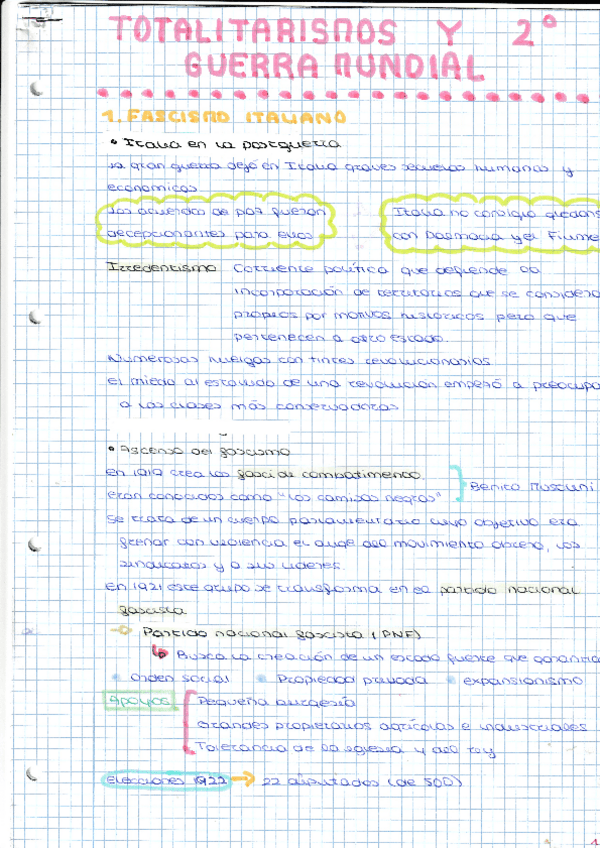 TOTALITARISMOS Y 2º
GUERRA MUNDIAL
1. FASCISMO ITALIANO
• Italia en la postguerra
La gran guerra dejó en Italia graves secuelas humanas y
económicas
Los acuerdos de paz fueron
decepcionantes para ellos
Italia no consigió quedars
con Dalmacia y el Fiume
Irredentismo Corriente política que defiende la
incorporación de territorios que se considera
propios por motivos historicos pero que
pertenecen a otro estado.
Numerosas huelgas con tintes revolucionarios.
el miedo al estallido de una revolución empezó a preocupa
a las clases más conservadoras
• Ascenso del fascismo
en 1919 crea los fasci de combattimento.
eran conocidos como "los camisas negras"
Benito Mussolini
se trata de un cuerpo parlamentario cuyo objetivo era
frenar con violencia el auge del movimiento obrero, los
sindicatos y a sus lideres.
en 1921 este grupo se transforma en el partido nacional
fascista
→ Partido nacional fascista (PNF)
↳ Busca la creación de un estado fuerte que garantiza
• orden social • Propiedad privada • expansionismo
Apoyos
Pequeña burgesía
Grandes propietarios agrícolas e industriales
Tolerancia de la iglesia y del rey
Elecciones 1922 → 22 diputados (de 500)